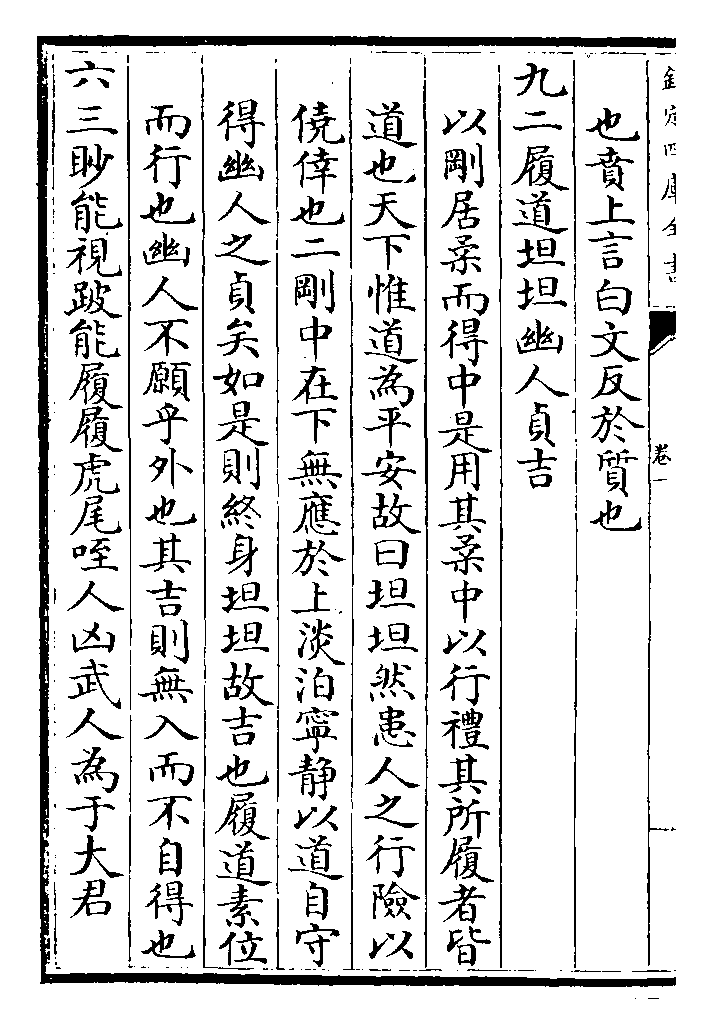 欽定四庫全書
卷一
也賁上言白文反於質也
九二履道坦坦幽人貞吉
以剛居柔而得中是用其柔中以行禮其所履者皆
道也天下惟道為平安故曰坦坦然患人之行險以
僥倖也二剛中在下無應於上淡泊寧静以道自守
得幽人之貞矣如是則終身坦坦故吉也履道素位
而行也幽人不願乎外也其吉則無入而不自得也
六三眇能視跛能履履虎尾咥人凶武人為于大君